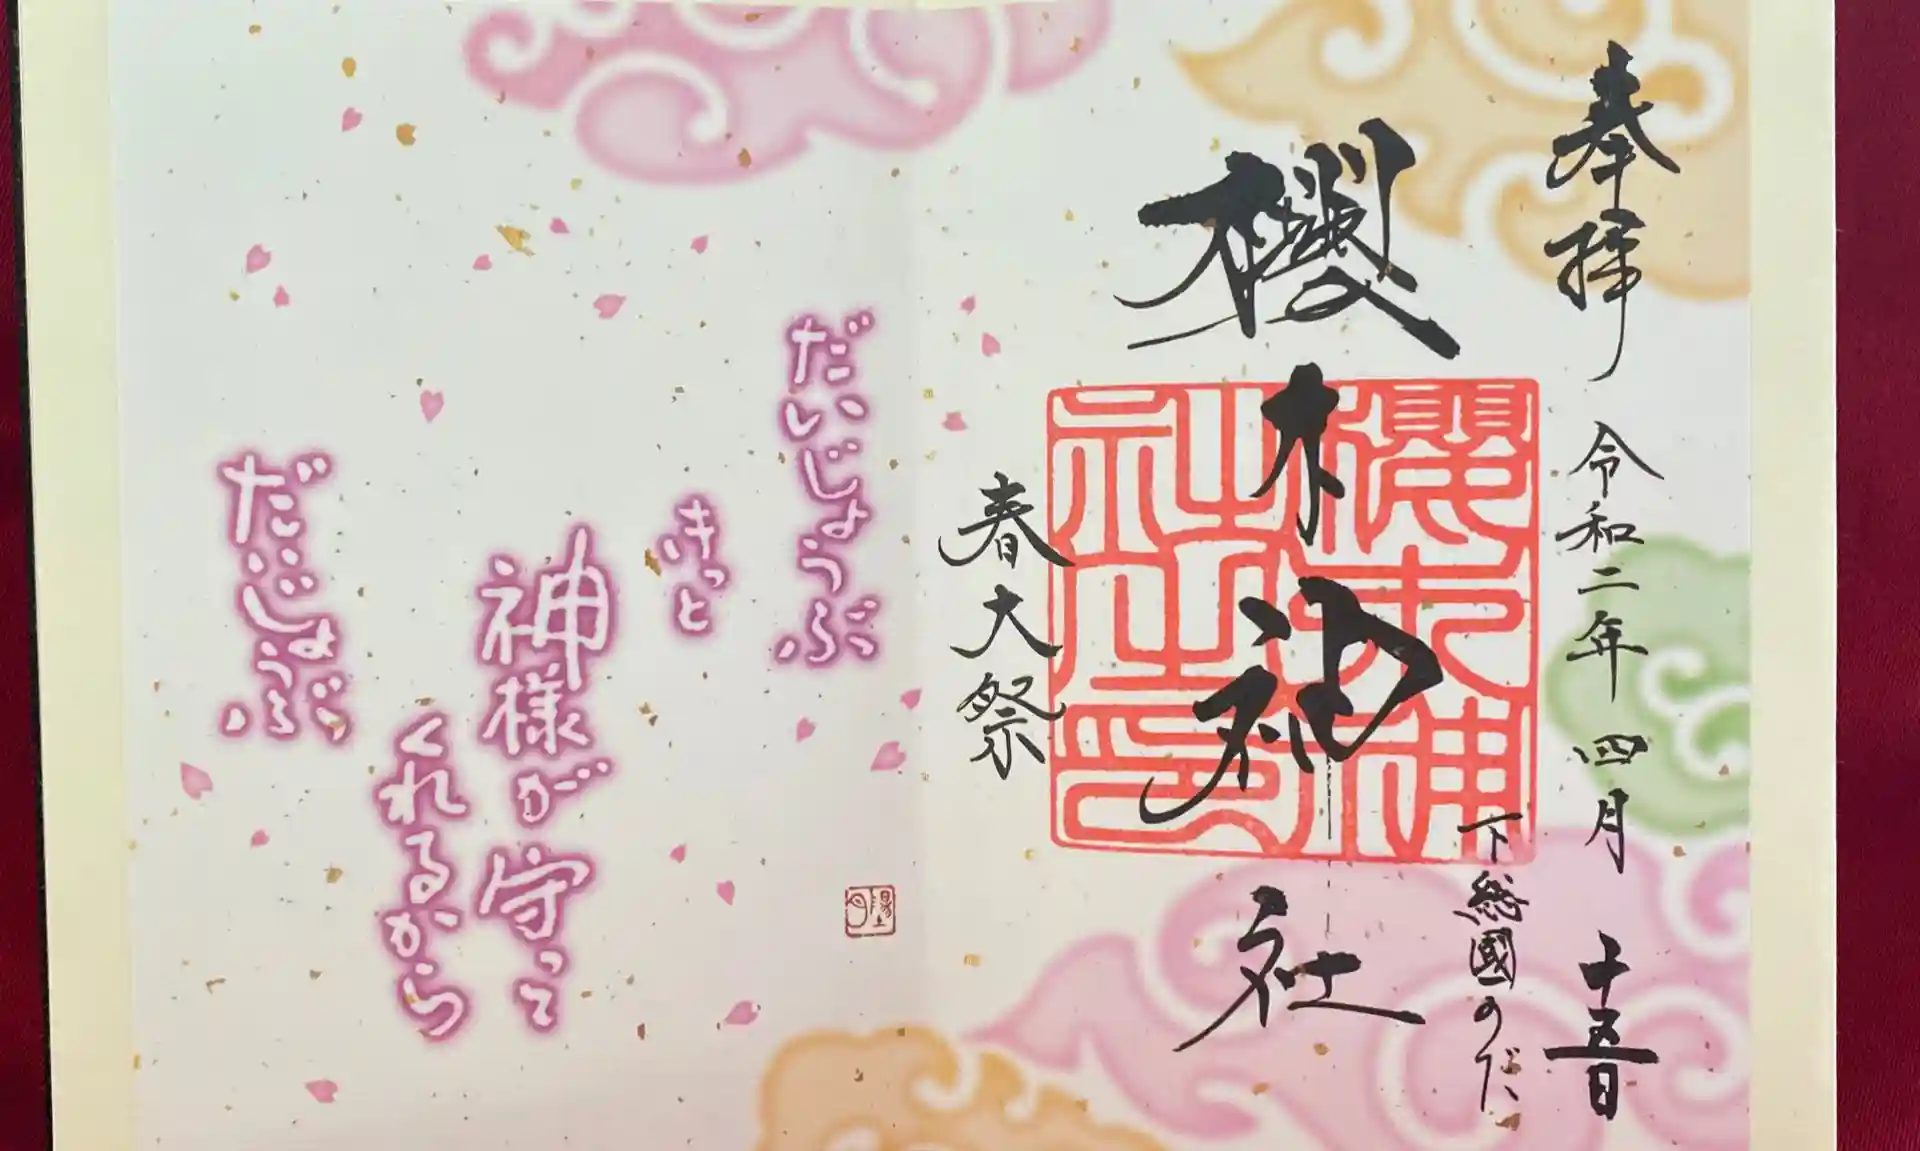 奉拝
令和二年四月十五日
下総國のだ
櫻木神社
櫻木神社之印
春大祭
だいじょうぶ
きっと
神様が守って
くれるから
だいじょうぶ